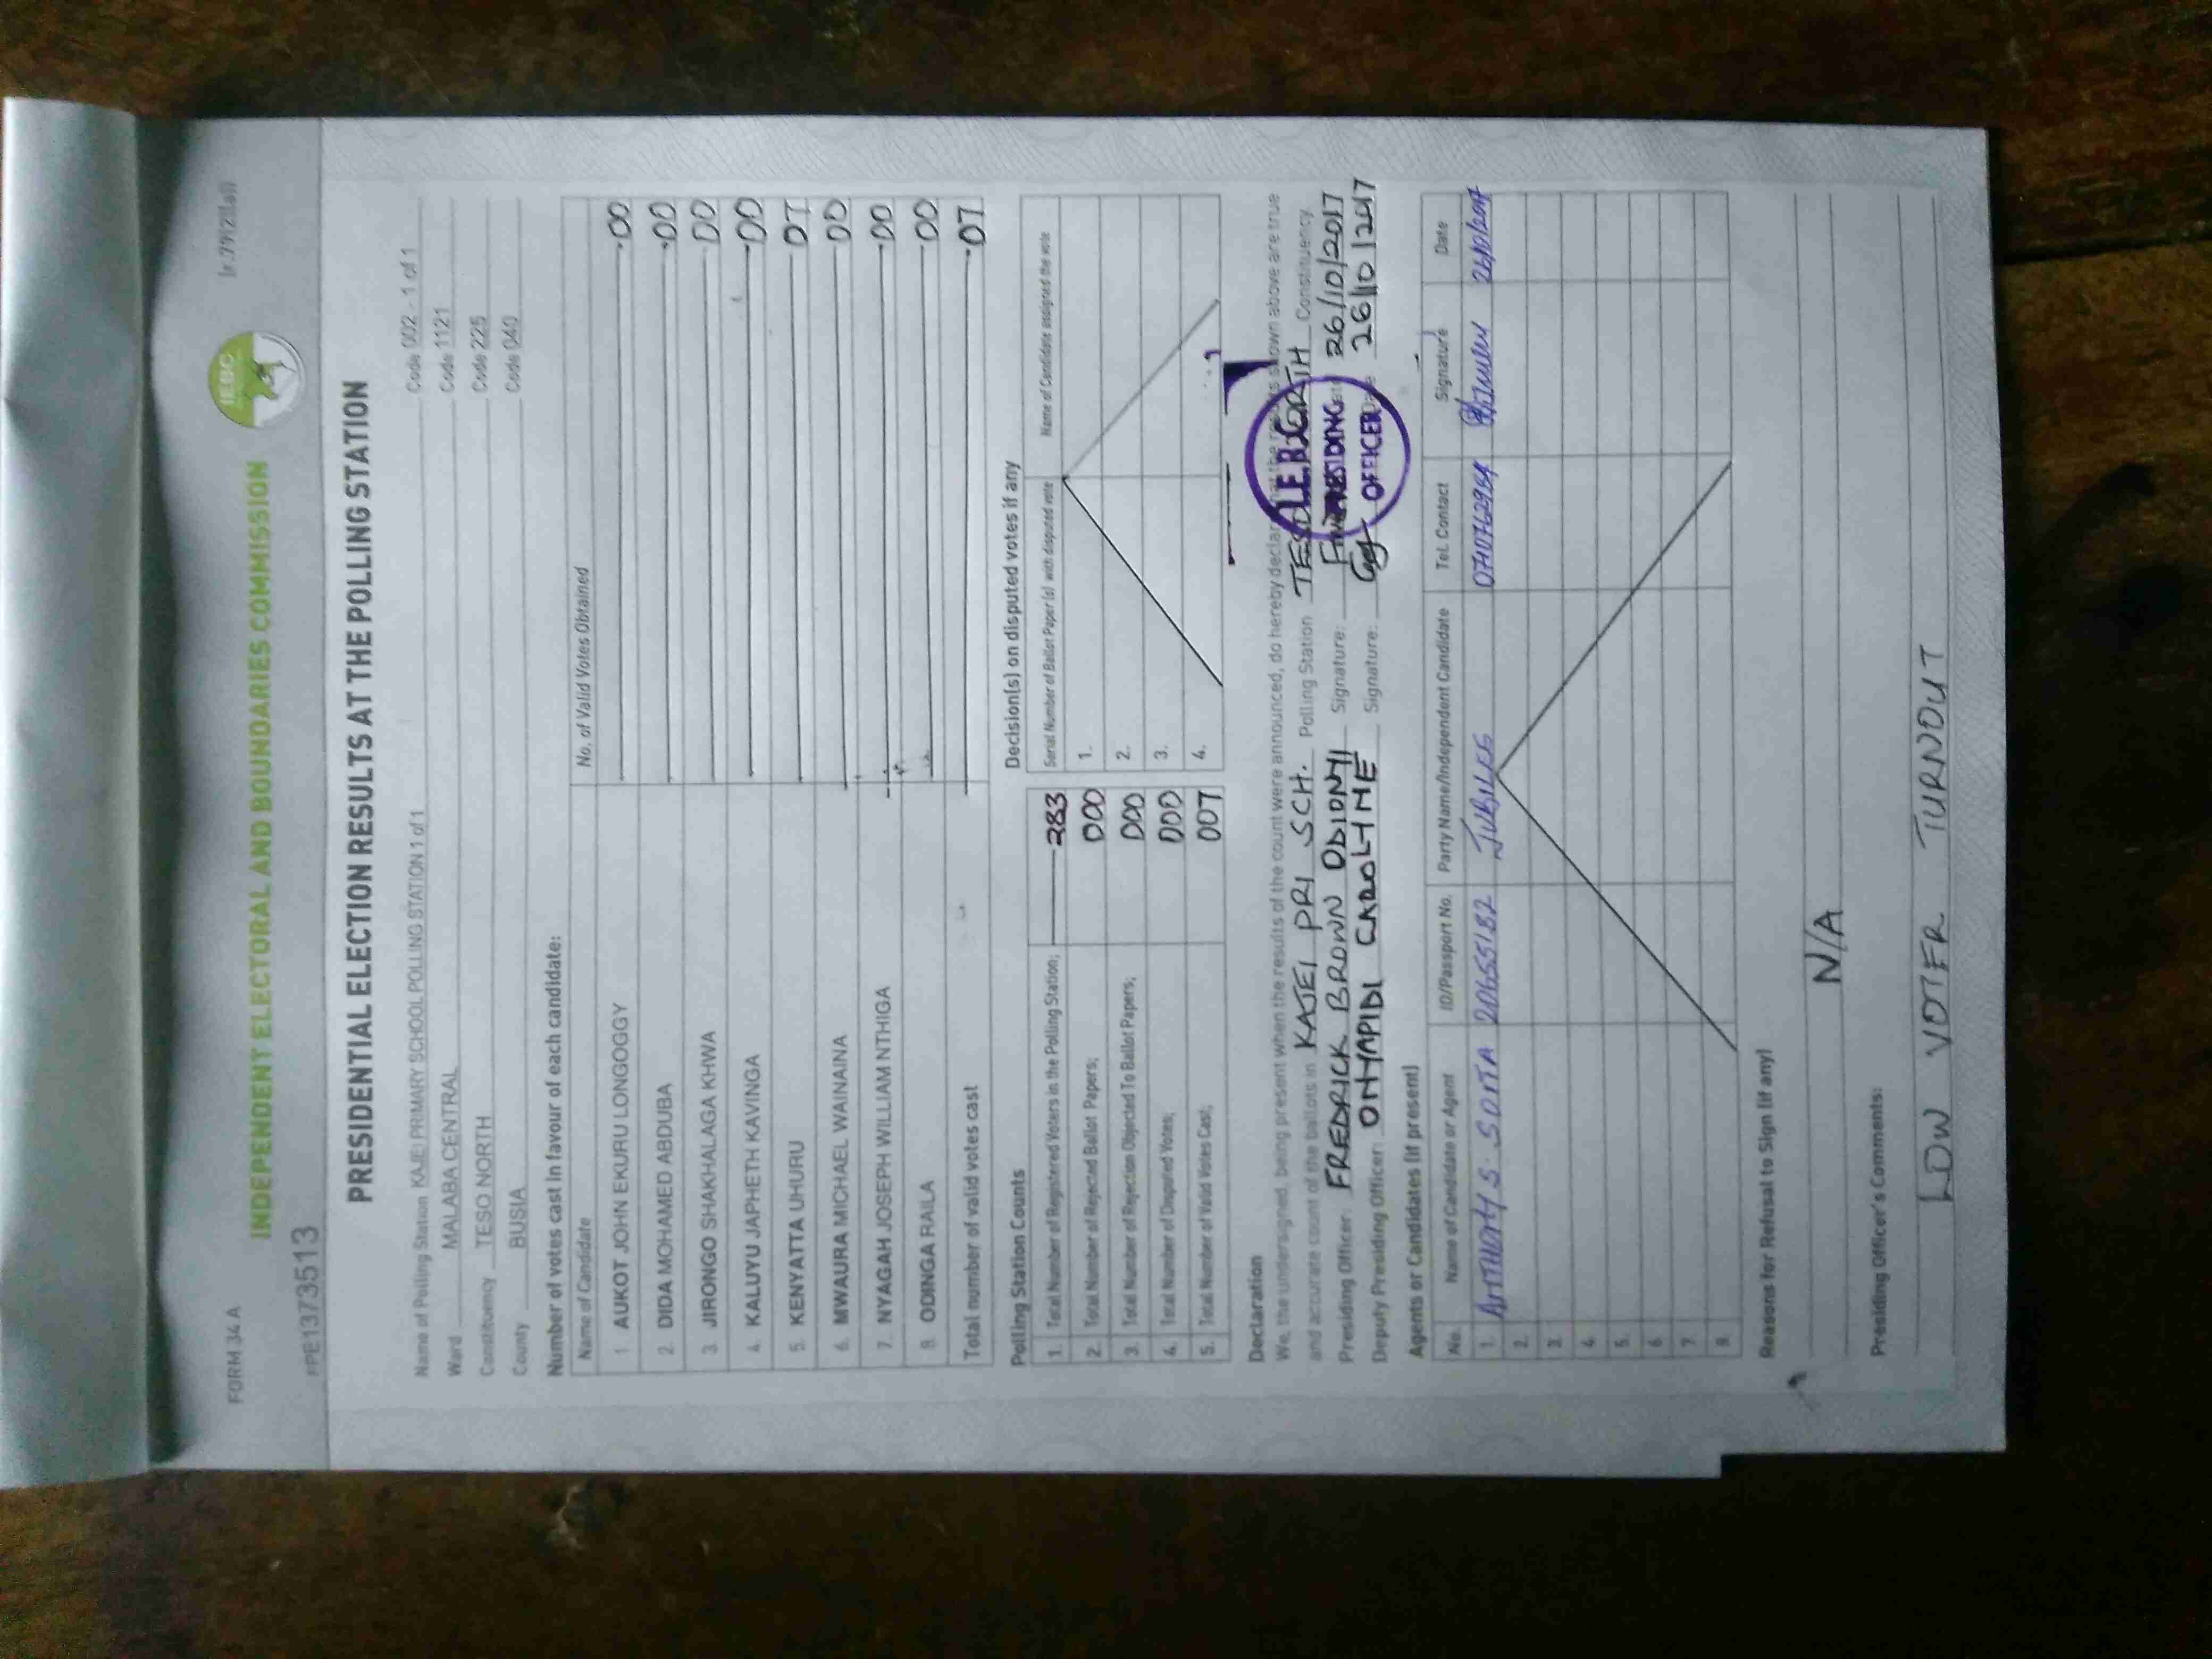 FORM 34 A
(r.79(2)(a))
IEBC
INDEPENDENT ELECTORAL AND BOUNDARIES COMMISSION
PRESIDENTIAL ELECTION RESULTS AT THE POLLING STATION
Name of Polling Station KAJEI PRIMARY SCHOOL POLLING STATION 1 of 1 Code 002 - 1 of 1
Ward MALABA CENTRAL Code 1121
Constituency TESO NORTH Code 225
County BUSIA Code 040
Number of votes cast in favour of each candidate:
Name of Candidate No. of Valid Votes Obtained
1 AUKOT JOHN EKURU LONGOGGY 00
2. DIDA MOHAMED ABDUBA 00
3. JIRONGO SHAKHALAGA KHWA 00
4. KALUYU JAPHETH KAVINGA 00
5. KENYATTA UHURU 07
6. MWAURA MICHAEL WAINAINA 00
7. NYAGAH JOSEPH WILLIAM NTHIGA 00
8. ODINGA RAILA 00
Total number of valid votes cast 07
Polling Station Counts
1. Total Number of Registered Voters in the Polling Station; 383
2. Total Number of Rejected Ballot Papers; 000
3. Total Number of Rejection Objected To Ballot Papers; 000
4. Total Number of Disputed Votes; 000
5. Total Number of Valid Votes Cast; 007
Decision(s) on disputed votes if any
Serial Number of Ballot Paper (s) with disputed vote Name of Candidate assigned the vote
1.
2.
3.
4.
Declaration
We, the undersigned, being present when the results of the count were announced, do hereby declare that the results shown above are true
and accurate count of the ballots in KAJEI PRI SCH. Polling Station TESO NORTH Constituency.
Presiding Officer: FREDRICK BROWN ODIONYI Signature: Date 26/10/2017
Deputy Presiding Officer: ONYAPIDI CAROLYNE Signature: Date 26/10/2017
PRESIDING
OFFICER
Agents or Candidates (if present)
No. Name of Candidate or Agent ID/Passport No. Party Name/Independent Candidate Tel. Contact Signature Date
1. JUBILEE 26/10/2017
2.
3.
4.
5.
6.
7.
8.
Reasons for Refusal to Sign (if any)
N/A
Presiding Officer's Comments:
LOW VOTER TURNOUT